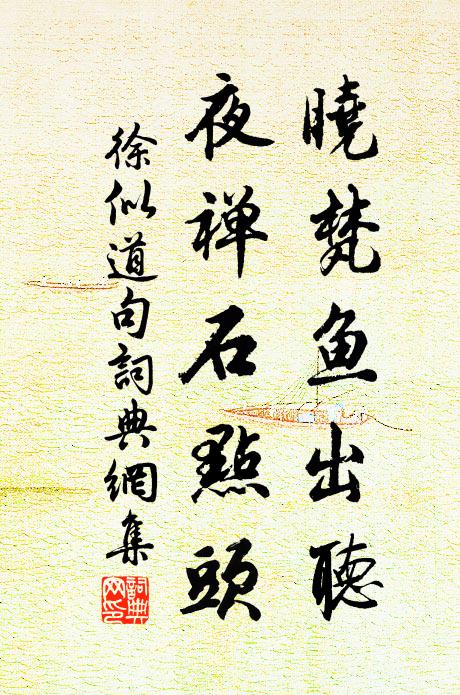 曉梵魚出聽
夜禅石點頭
徐似道句詞典網集
詞典
网印